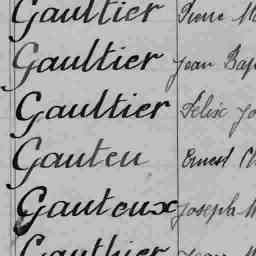 Gaultier Pierre M
Gaultier Jean Bap
Gaultier Félix Jo
Gauteu Ernest Ch
Gauteux Joseph M
Gauthier Jean M